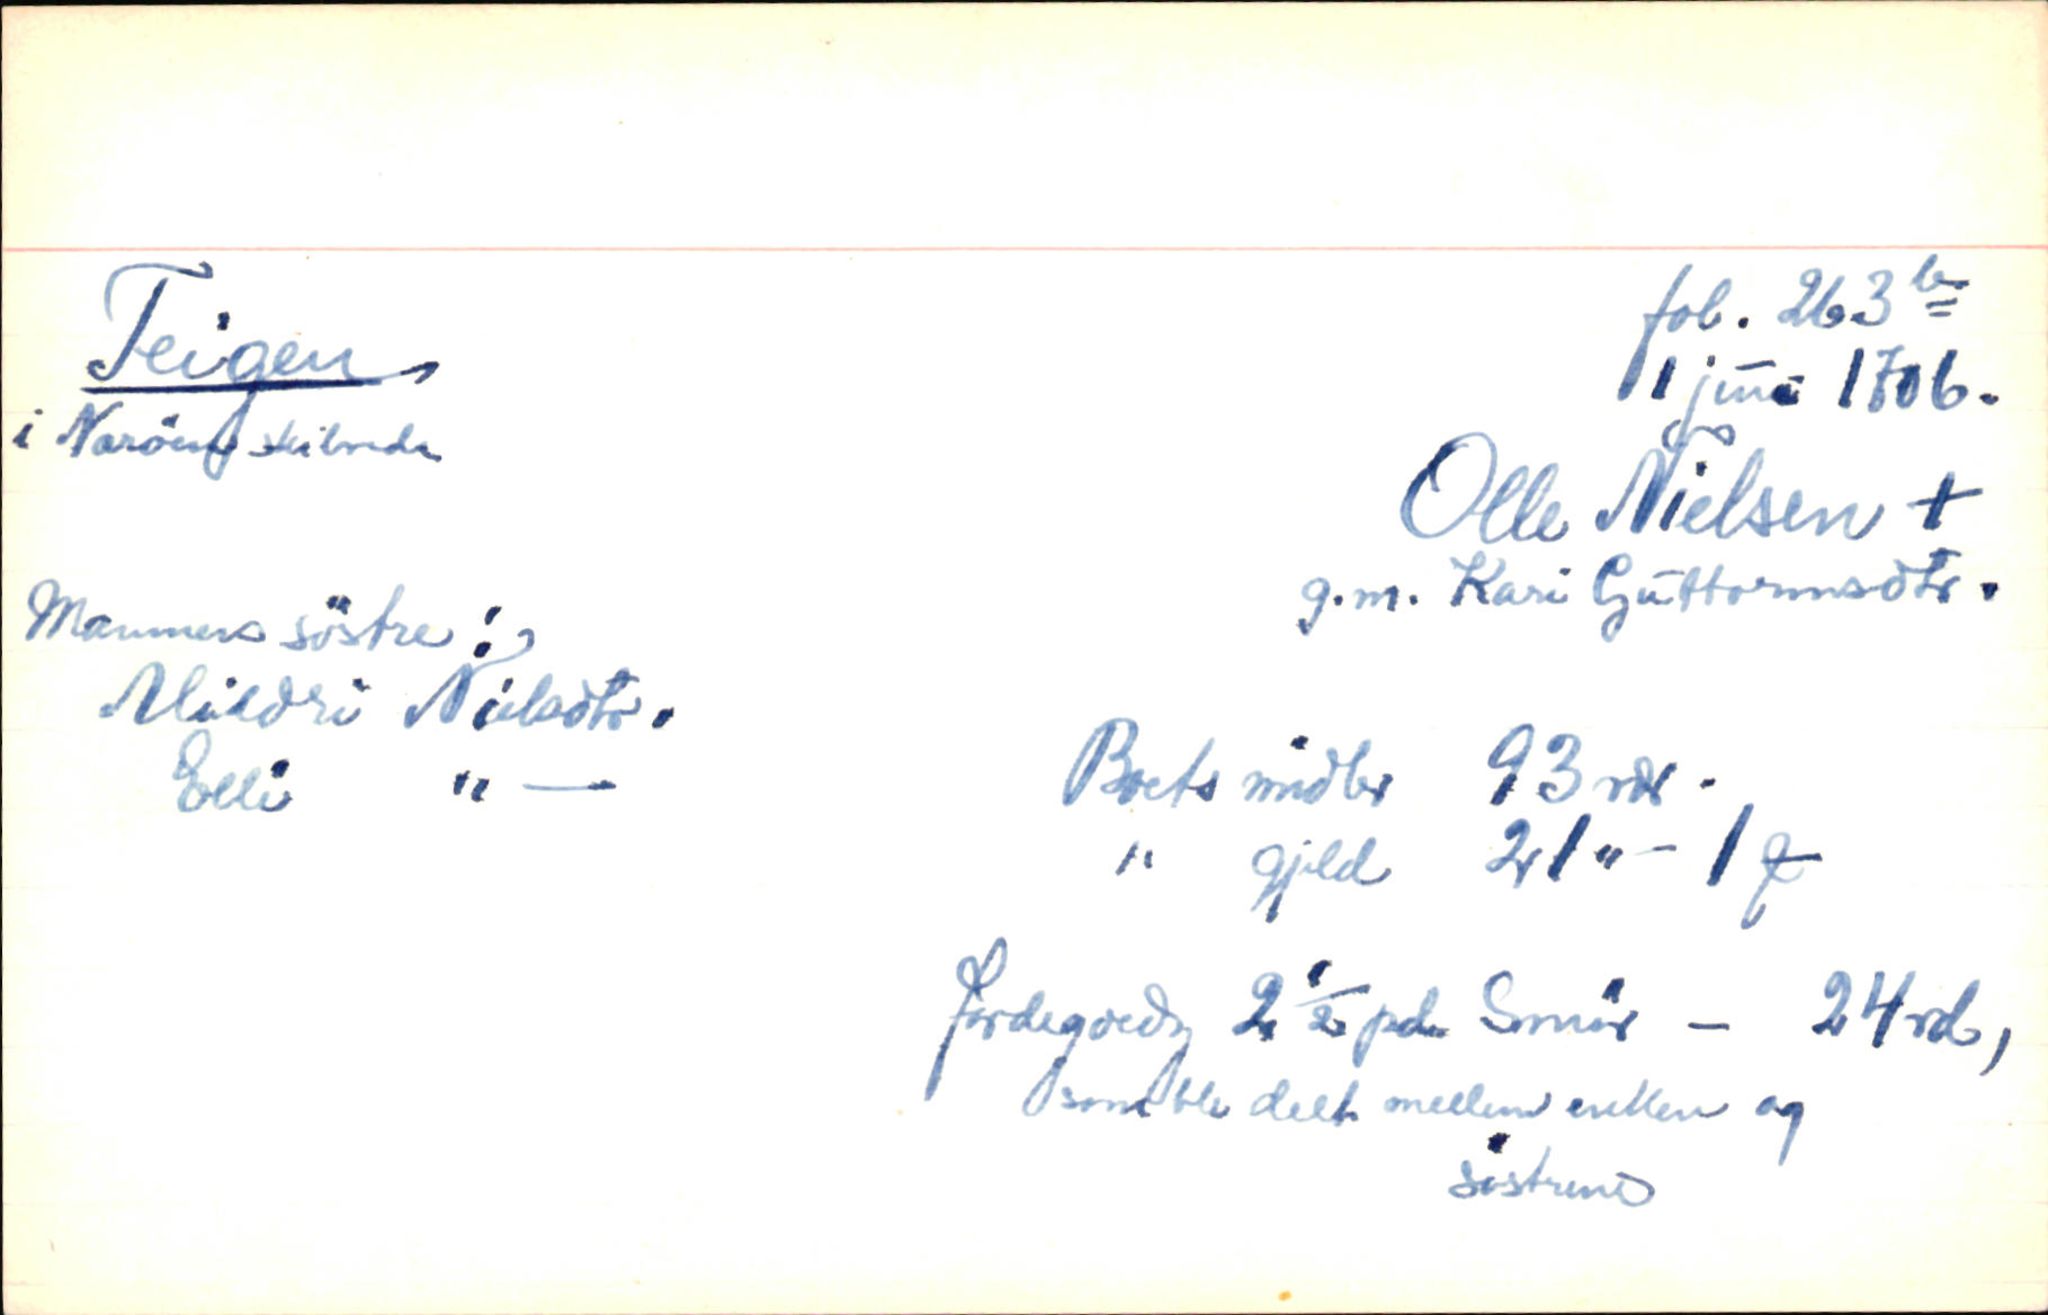 Teigen
i Naröens skibrede
fol. 263 b
11 juni 1706.
Olle Nielsen +
g.m. Kari Guttormsdtr.
Mannens söstre:
Mildri Nielsdtr.
Elli " —
Boets midler 93 rdr.
" gjeld 21 " - 1 β
Jordegoeds 2 1/2 pd. Smör - 24 rd,
som ble delt mellem enken og
söstrene